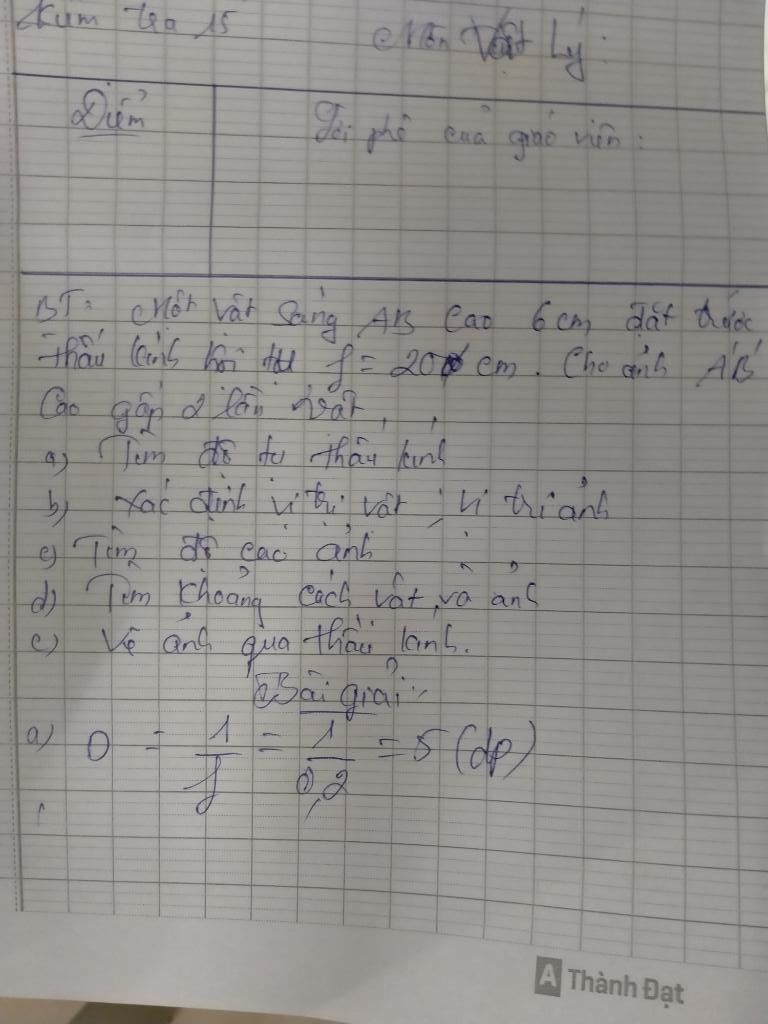 Kiểm tra 15
Môn Vật Lý:
Điểm
Lời phê của giáo viên:
BT: Một vật sáng AB cao 6cm đặt trước
thấu kính hội tụ f = 20 cm. Cho ảnh A'B'
Cao gấp 2 lần vật.
a) Tìm độ tụ thấu kính
b) Xác định vị trí vật, vị trí ảnh
c) Tìm độ cao ảnh
d) Tìm khoảng cách vật và ảnh
e) Vẽ ảnh qua thấu kính.
Bài giải:
a) D = 1/f = 1/0,2 = 5 (dp)
A Thành Đạt